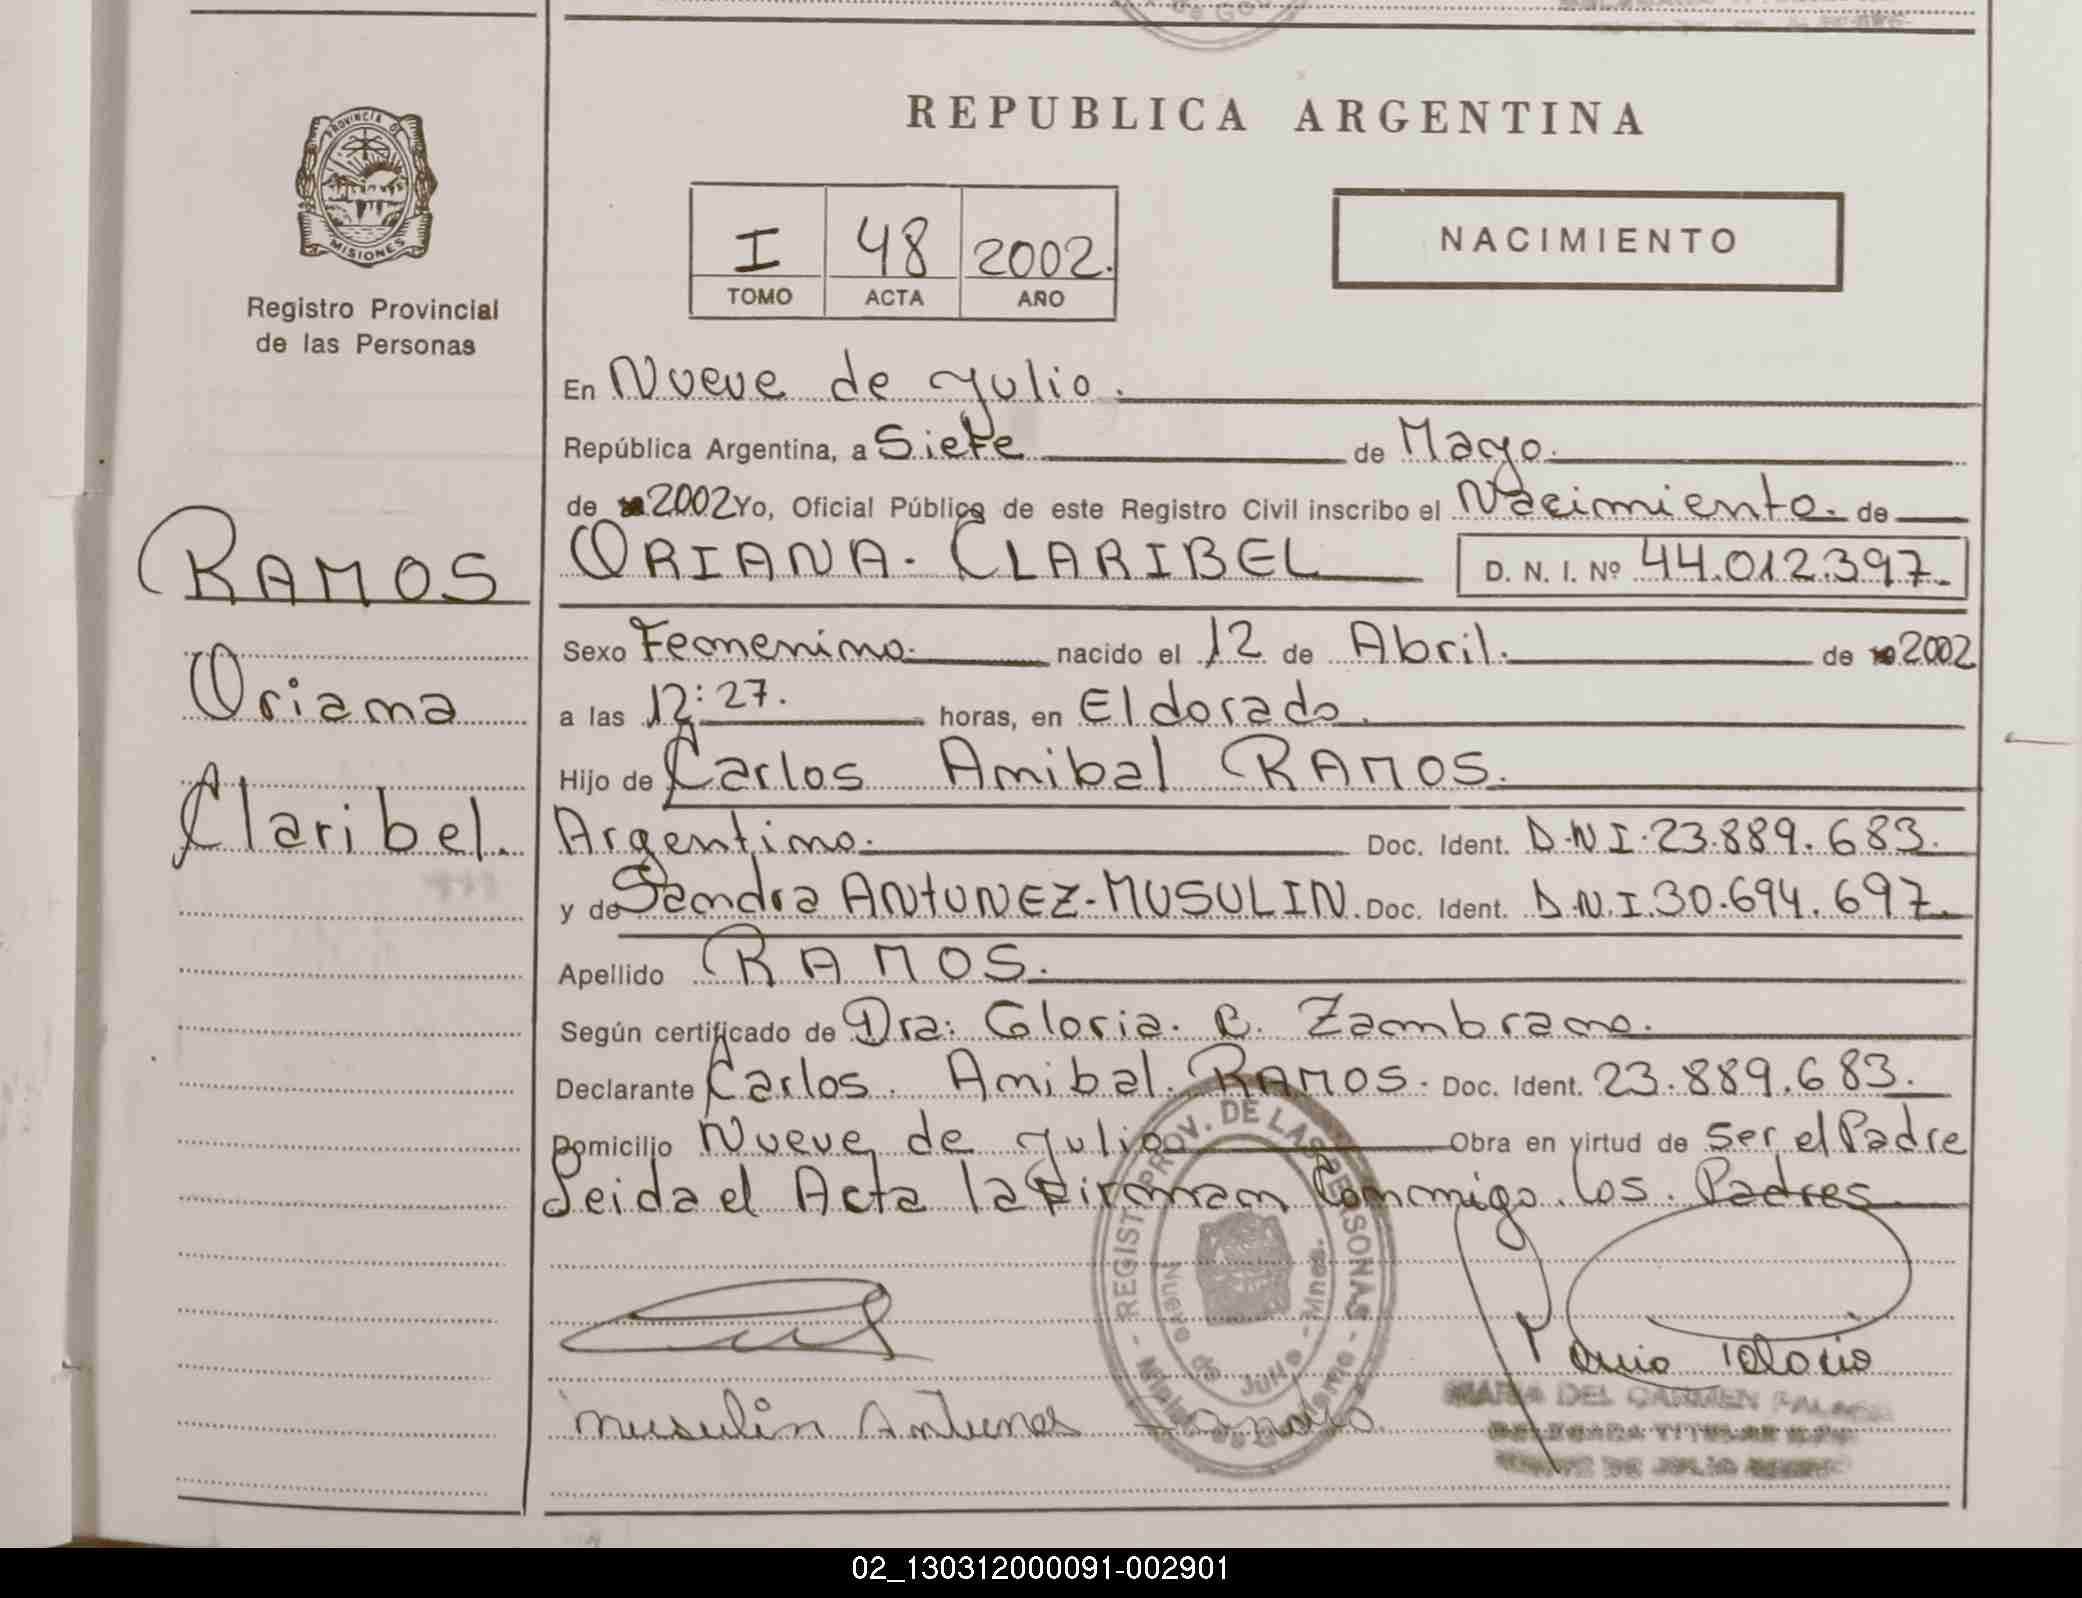 REPUBLICA ARGENTINA
PROVINCIA DE
MISIONES
Registro Provincial
de las Personas
I 48 2002.
TOMO ACTA AÑO
NACIMIENTO
En Nueve de Julio.
República Argentina, a Siete de Mayo.
de 2002 Yo, Oficial Público de este Registro Civil inscribo el Nacimiento. de
RAMOS
ORIANA. CLARIBEL D. N. I. Nº 44.012.397.
Sexo Femenino. nacido el 12 de Abril. de 2002
Oriana
a las 12:27. horas, en Eldorado.
Hijo de Carlos Anibal RAMOS.
Claribel.
Argentino. Doc. Ident. D.N.I. 23.889.683.
y de Sandra ANTUNEZ-MUSULIN. Doc. Ident. D.N.I. 30.694.697.
Apellido RAMOS.
Según certificado de Dra: Gloria. C. Zambrano.
Declarante Carlos. Anibal. RAMOS. Doc. Ident. 23.889.683.
Domicilio Nueve de Julio Obra en virtud de Ser el Padre
Leida el Acta la Firman Conmigo. los. Padres
REGIST. PROV. DE LAS PERSONAS
Nueve de Julio - Mnes.
Musulin Antunes Sandra.
MARIA DEL CARMEN
DELEGADA TITULAR
NUEVE DE JULIO
02_130312000091-002901